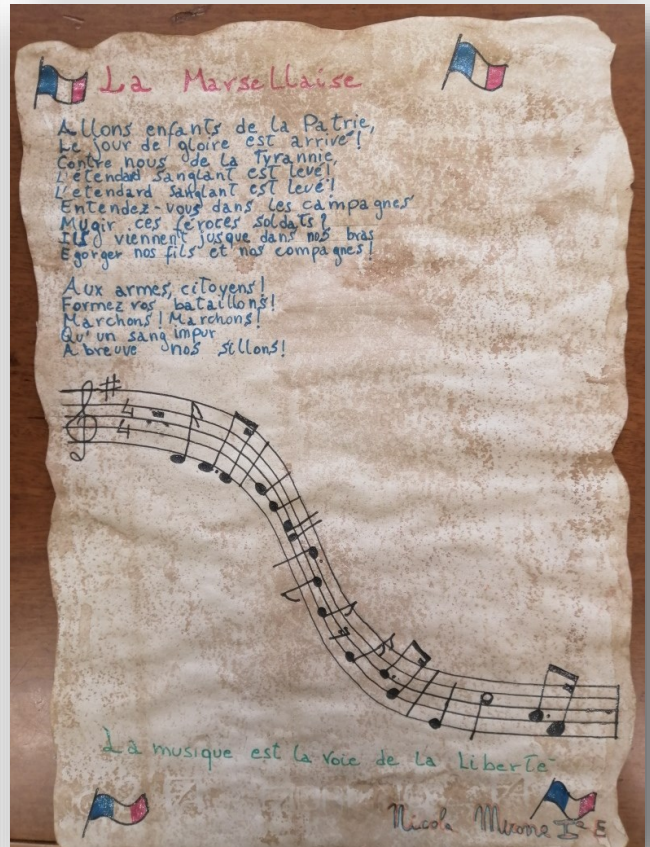 La Marsellaise
Allons enfants de la Patrie,
Le jour de gloire est arrivé!
Contre nous de la Tyrannie,
L'étendard sanglant est levé!
L'étendard sanglant est levé!
Entendez-vous dans les campagnes
Mugir ces féroces soldats?
Ils viennent jusque dans nos bras
Égorger nos fils et nos compagnes!
Aux armes, citoyens!
Formez vos bataillons!
Marchons! Marchons!
Qu'un sang impur
Abreuve nos sillons!
4
4
La musique est la voie de la Liberté
Nicola E